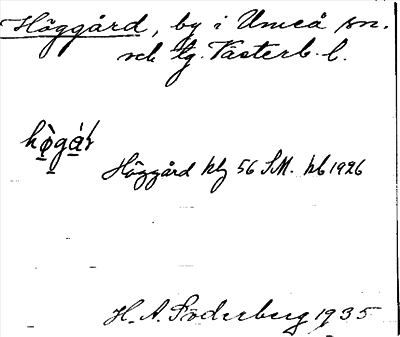 Höggård, by i Umeå sn.
och tg. Västerb. l.
hø̀gá̱r
Höggård hlz 56 S.M. kb 1926
H. A. Söderberg 1935